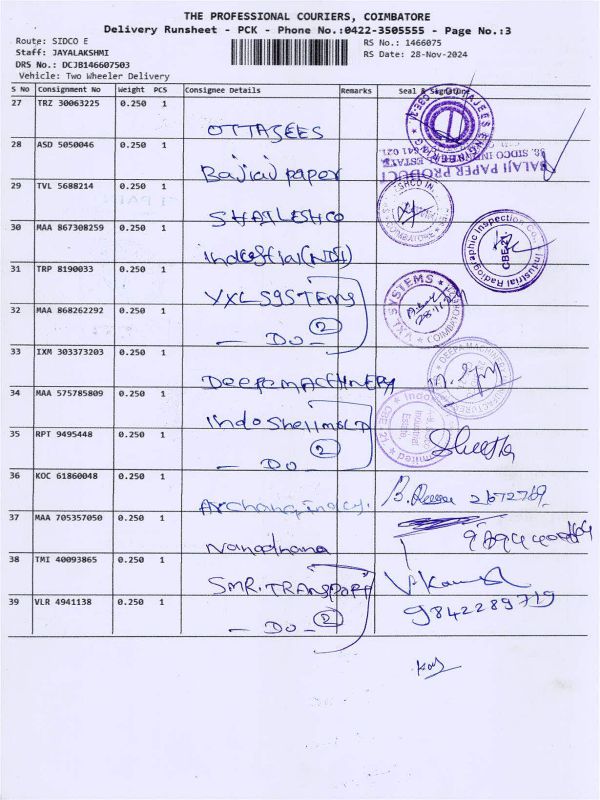 THE PROFESSIONAL COURIERS, COIMBATORE
Delivery Runsheet - PCK - Phone No.:0422-3505555 - Page No.:3
Route: SIDCO E
Staff: JAYALAKSHMI
DRS No.: DCJB146607503
Vehicle: Two Wheeler Delivery
RS No.: 1466075
RS Date: 28-Nov-2024
S No Consignment No Weight PCS Consignee Details Remarks Seal & Signature
27 TRZ 30063225 0.250 1 OTTAJEES
28 ASD 5050046 0.250 1 Balaji paper
BALAJI PAPER PRODUCT
SIDCO INDUSTRIAL ESTATE
29 TVL 5688214 0.250 1 SHAILESHCO
30 MAA 867308259 0.250 1 industrial (NDI)
Industrial Radiographic Inspection Co.
31 TRP 8190033 0.250 1 VXL SYSTEMS
VXL SYSTEMS COIMBATORE
32 MAA 868262292 0.250 1 - DO - 2
33 IXM 303373203 0.250 1 Deepa MACHINERY
DEEPA MACHINERY MANUFACTURERS
34 MAA 575785809 0.250 1 Indo Shell MOLD
35 RPT 9495448 0.250 1 - DO - 2
36 KOC 61860048 0.250 1
37 MAA 705357050 0.250 1 Nanadhana
38 TMI 40093865 0.250 1 SMR. TRANSPORT
39 VLR 4941138 0.250 1 - DO - 2
9842289719